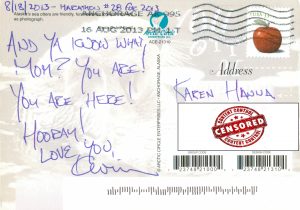 8/18/2013 - MARATHON #28 OF 2013
ANCHORAGE AK 995
16 AUG 2013 PM
as photograph.
AND YA KNOW WHAT
MOM? YOU ARE!
YOU ARE HERE!
HOORAY!
LOVE YOU,
Address
KAREN HANNA
CONTENT CONTROL
CENSORED
CONTENT CONTROL
© ARCTIC CIRCLE ENTERPRISES LLC • ANCHORAGE, ALASKA